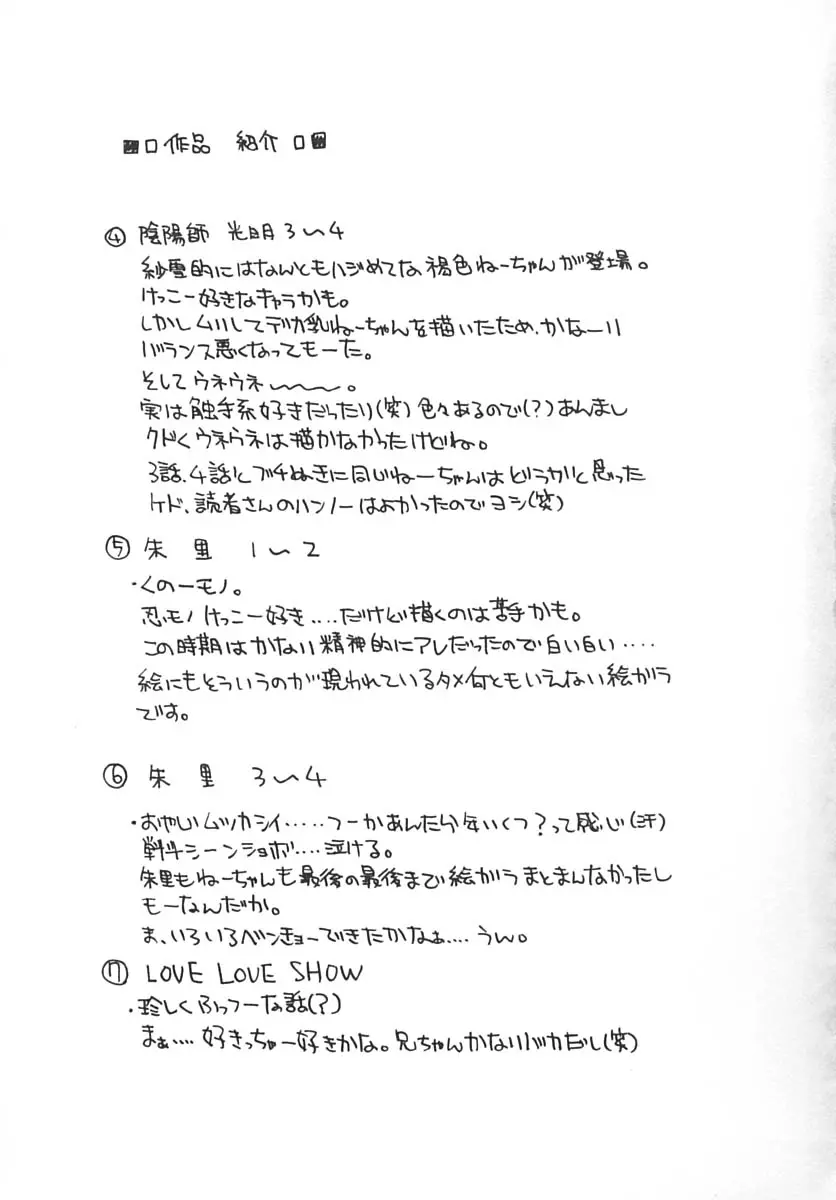 ■□作品 紹介□■
④ 陰陽師 光明 3〜4
紗雪的にはなんともハジめてな、褐色ねーちゃんが登場。
けっこー好きなキャラかも。
しかしムリしてデカ乳ねーちゃんを描いたため、かなーり
バランス悪くなってもーた。
そしてウネウネ〜〜〜。
実は触手系好きだったり(笑) 色々あるので(?)あんまし
クドくウネウネは描かなかったけどね。
3話、4話とブチぬきに同じねーちゃんはどうかと思った
ケド、読者さんのハンノーはよかったのでヨシ(笑)
⑤ 朱里 1〜2
・くの一モノ。
忍モノけっこー好き‥‥だけど描くのは苦手かも。
この時期はかなり精神的にアレだったので白い白い‥‥
絵にもそういうのが現われているタメ何ともいえない絵ガラ
です。
⑥ 朱里 3〜4
・おやじムツカシイ‥‥‥つーかあんたら年いくつ?って感じ(汗)
戦斗シーンショボ‥‥泣ける。
朱里もねーちゃんも最後の最後まで絵ガラまとまんなかったし
もーなんだか。
ま、いろいろベンキョーできたかなぁ‥‥うん。
⑦ LOVE LOVE SHOW
・珍しくふっつーな話(?)
まぁ‥‥好きっちゃー好きかな。兄ちゃんかなりバカだし(笑)